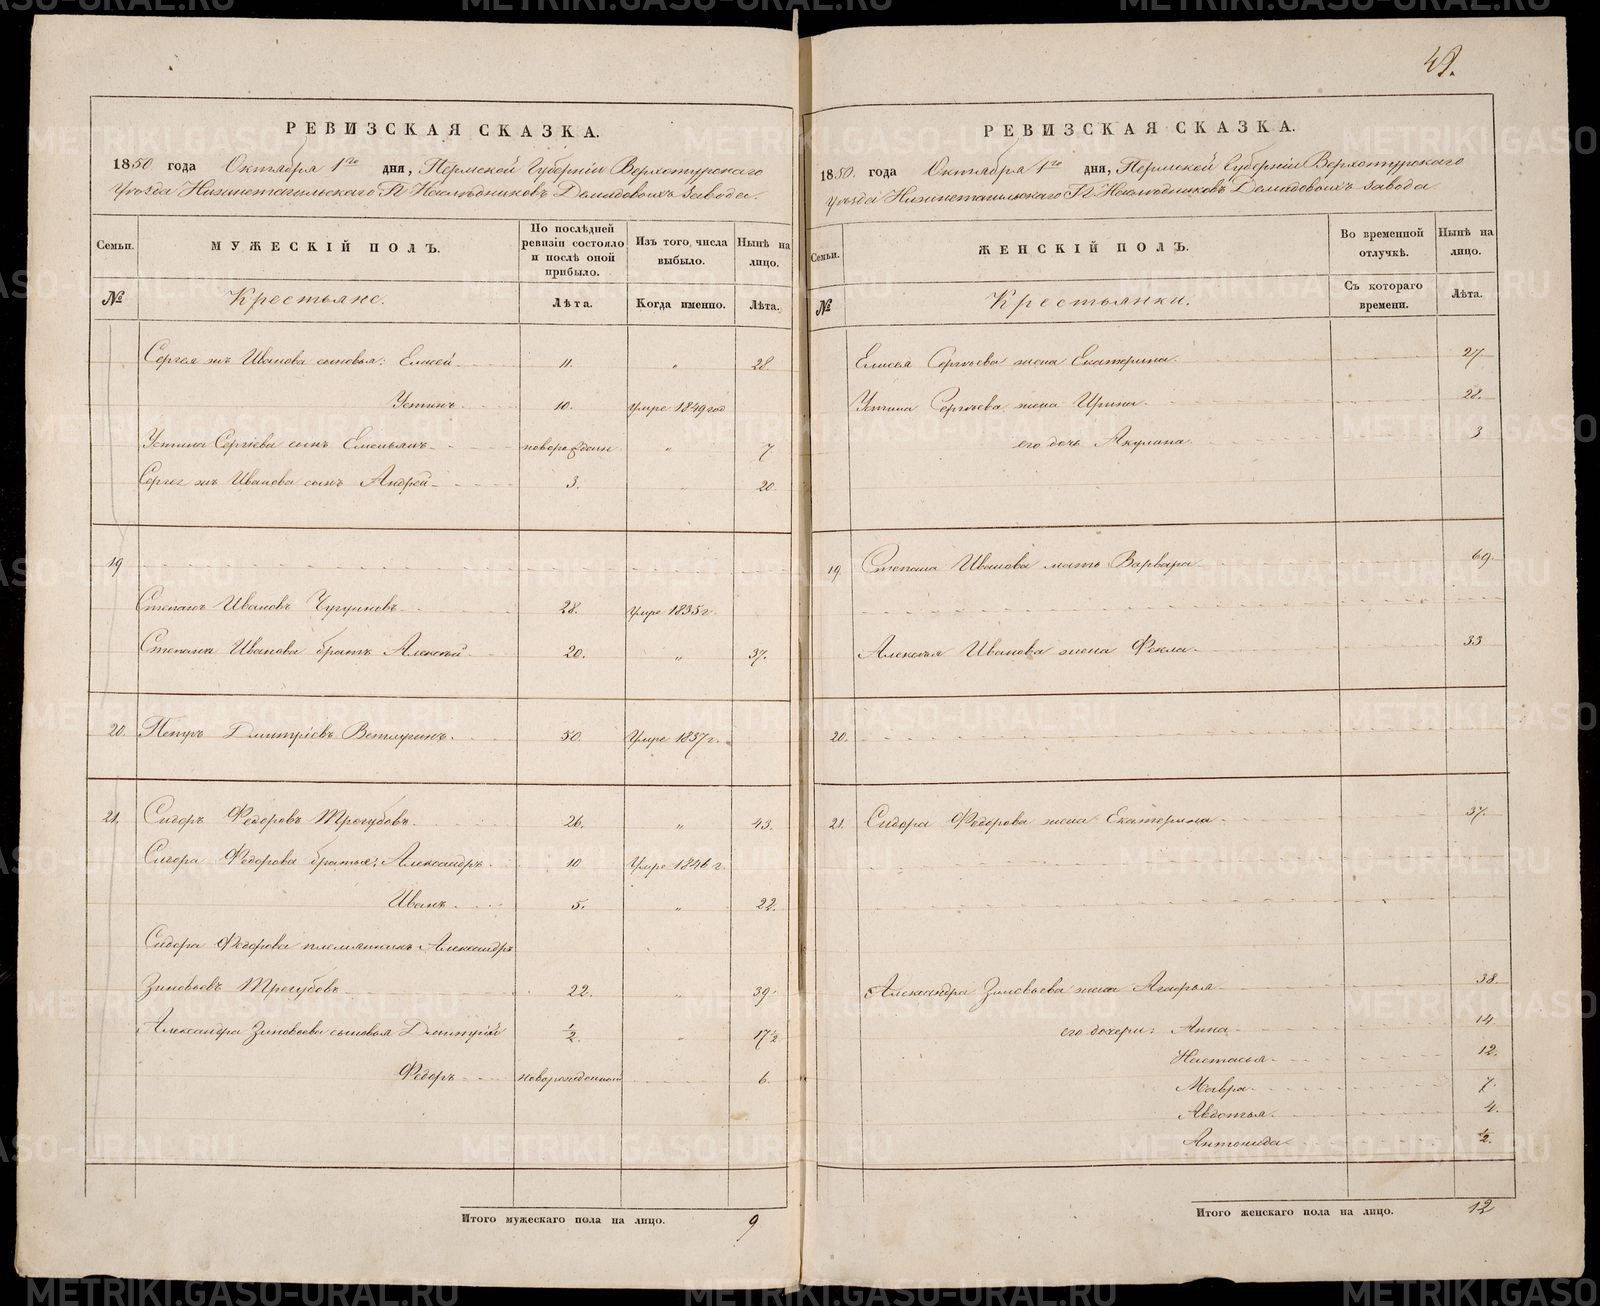 49.
РЕВИЗСКАЯ СКАЗКА.
1850 года Октября 1го дня, Пермской Губернiи Верхотурскаго
Уѣзда Нижнетагильскаго Гг. Наслѣдниковъ Демидовыхъ Завода.
Семьи.
МУЖЕСКIЙ ПОЛЪ.
По послѣдней ревизiи состояло и послѣ оной прибыло.
Изъ того числа выбыло.
Нынѣ на лицо.
№ Крестьяне. Лѣта. Когда именно. Лѣта.
Сергея жъ Иванова сыновья: Елисей 11. " 28
Устинъ 10. Умре 1849 год
Устина Сергiева сынъ Емельянъ новорожден. " 7
Сергея жъ Иванова сынъ Андрей 3. 20.
19
Степанъ Ивановъ Чугуновъ 28. Умре 1835 г.
Степана Иванова братъ Алексѣй 20. " 37.
20. Петръ Дмитрiевъ Ветлугинъ 50. Умре 1837 г.
21. Сидоръ Федоровъ Трегубовъ 26. " 43.
Сидора Федорова братья: Александръ 10 Умре 1846 г.
Иванъ 5. " 22.
Сидора Федорова племянникъ Александръ
Зиновьевъ Трегубовъ 22. " 39.
Александра Зиновьева сыновья Дмитрiй ½. " 17½
Федоръ новорожденный 6.
Итого мужескаго пола на лицо. 9
РЕВИЗСКАЯ СКАЗКА.
1850 года Октября 1го дня, Пермской Губернiи Верхотурскаго
Уѣзда Нижнетагильскаго Гг. Наслѣдниковъ Демидовыхъ Завода
Семьи.
ЖЕНСКIЙ ПОЛЪ.
Во временной отлучкѣ.
Нынѣ на лицо.
№ Крестьянки. Съ котораго времени. Лѣта.
Елисея Сергѣева жена Екатерина 27
Устина Сергѣева жена Ирина 28.
его дочь Акулина 3
19 Степана Иванова мать Варвара 69.
Алексѣя Иванова жена Фекла 33
20.
21. Сидора Федорова жена Екатерина 37.
Александра Зиновьева жена Агафья 38
его дочери: Анна 14
Настасья 12.
Мавра 7.
Авдотья 4.
Антонида ½.
Итого женскаго пола на лицо. 12
METRIKI.GASO-URAL.RU